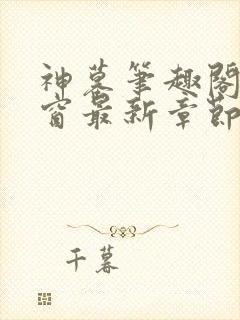 神墓笔趣阁
窗最新章节
千墓